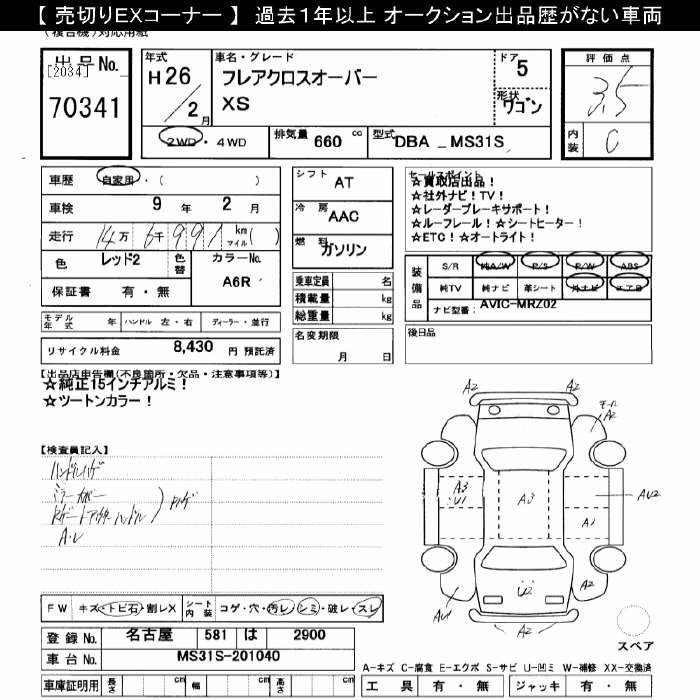 【 売切りEXコーナー 】 過去1年以上 オークション出品歴がない車両
(複合機)対応用紙
出品No.
[2034]
70341
年式
H26
/ 2月
車名・グレード
フレアクロスオーバー
XS
ドア
5
形状
ワゴン
評価点
3.5
内装
C
2WD・4WD
排気量 660 cc
型式 DBA _ MS31S
車歴 自家用・( )
車検 9 年 2 月
走行 14万 6千 991 km マイル( )
色 レッド2 色替 カラーNo. A6R
保証書 有・無
シフト AT
冷房 AAC
燃料 ガソリン
乗車定員 名
積載量 kg
総重量 kg
セールスポイント
☆買取店出品!
☆社外ナビ!TV!
☆レーダーブレーキサポート!
☆ルーフレール!☆シートヒーター!
☆ETC!☆オートライト!
装備品
S/R 純A/W P/S P/W ABS
純TV 純ナビ 革シート 外ナビ エアB
ナビ型番: AVIC-MRZ02
モデル年式 年 ハンドル 左・右 ディーラー・並行
リサイクル料金 8,430 円 預託済
名変期限
月 日
後日品
【出品店申告欄(不良箇所・欠品・注意事項等)】
☆純正15インチアルミ!
☆ツートンカラー!
【検査員記入】
ハンドルハゲ
ミラーカバー
A・レ
A2 A2
A2
A3
U1
A3
AU2
A1
U2
A2
A2
FW キズ・トビ石・割レX シート内装 コゲ・穴・汚レ・シミ・破レ・スレ
登録No. 名古屋 581 は 2900
車台No. MS31S-201040
車庫証明用 長さ 幅 高さ
スペア
A-キズ C-腐食 E-エクボ S-サビ U-凹ミ W-補修 XX-交換済
工具 有・無 ジャッキ 有・無